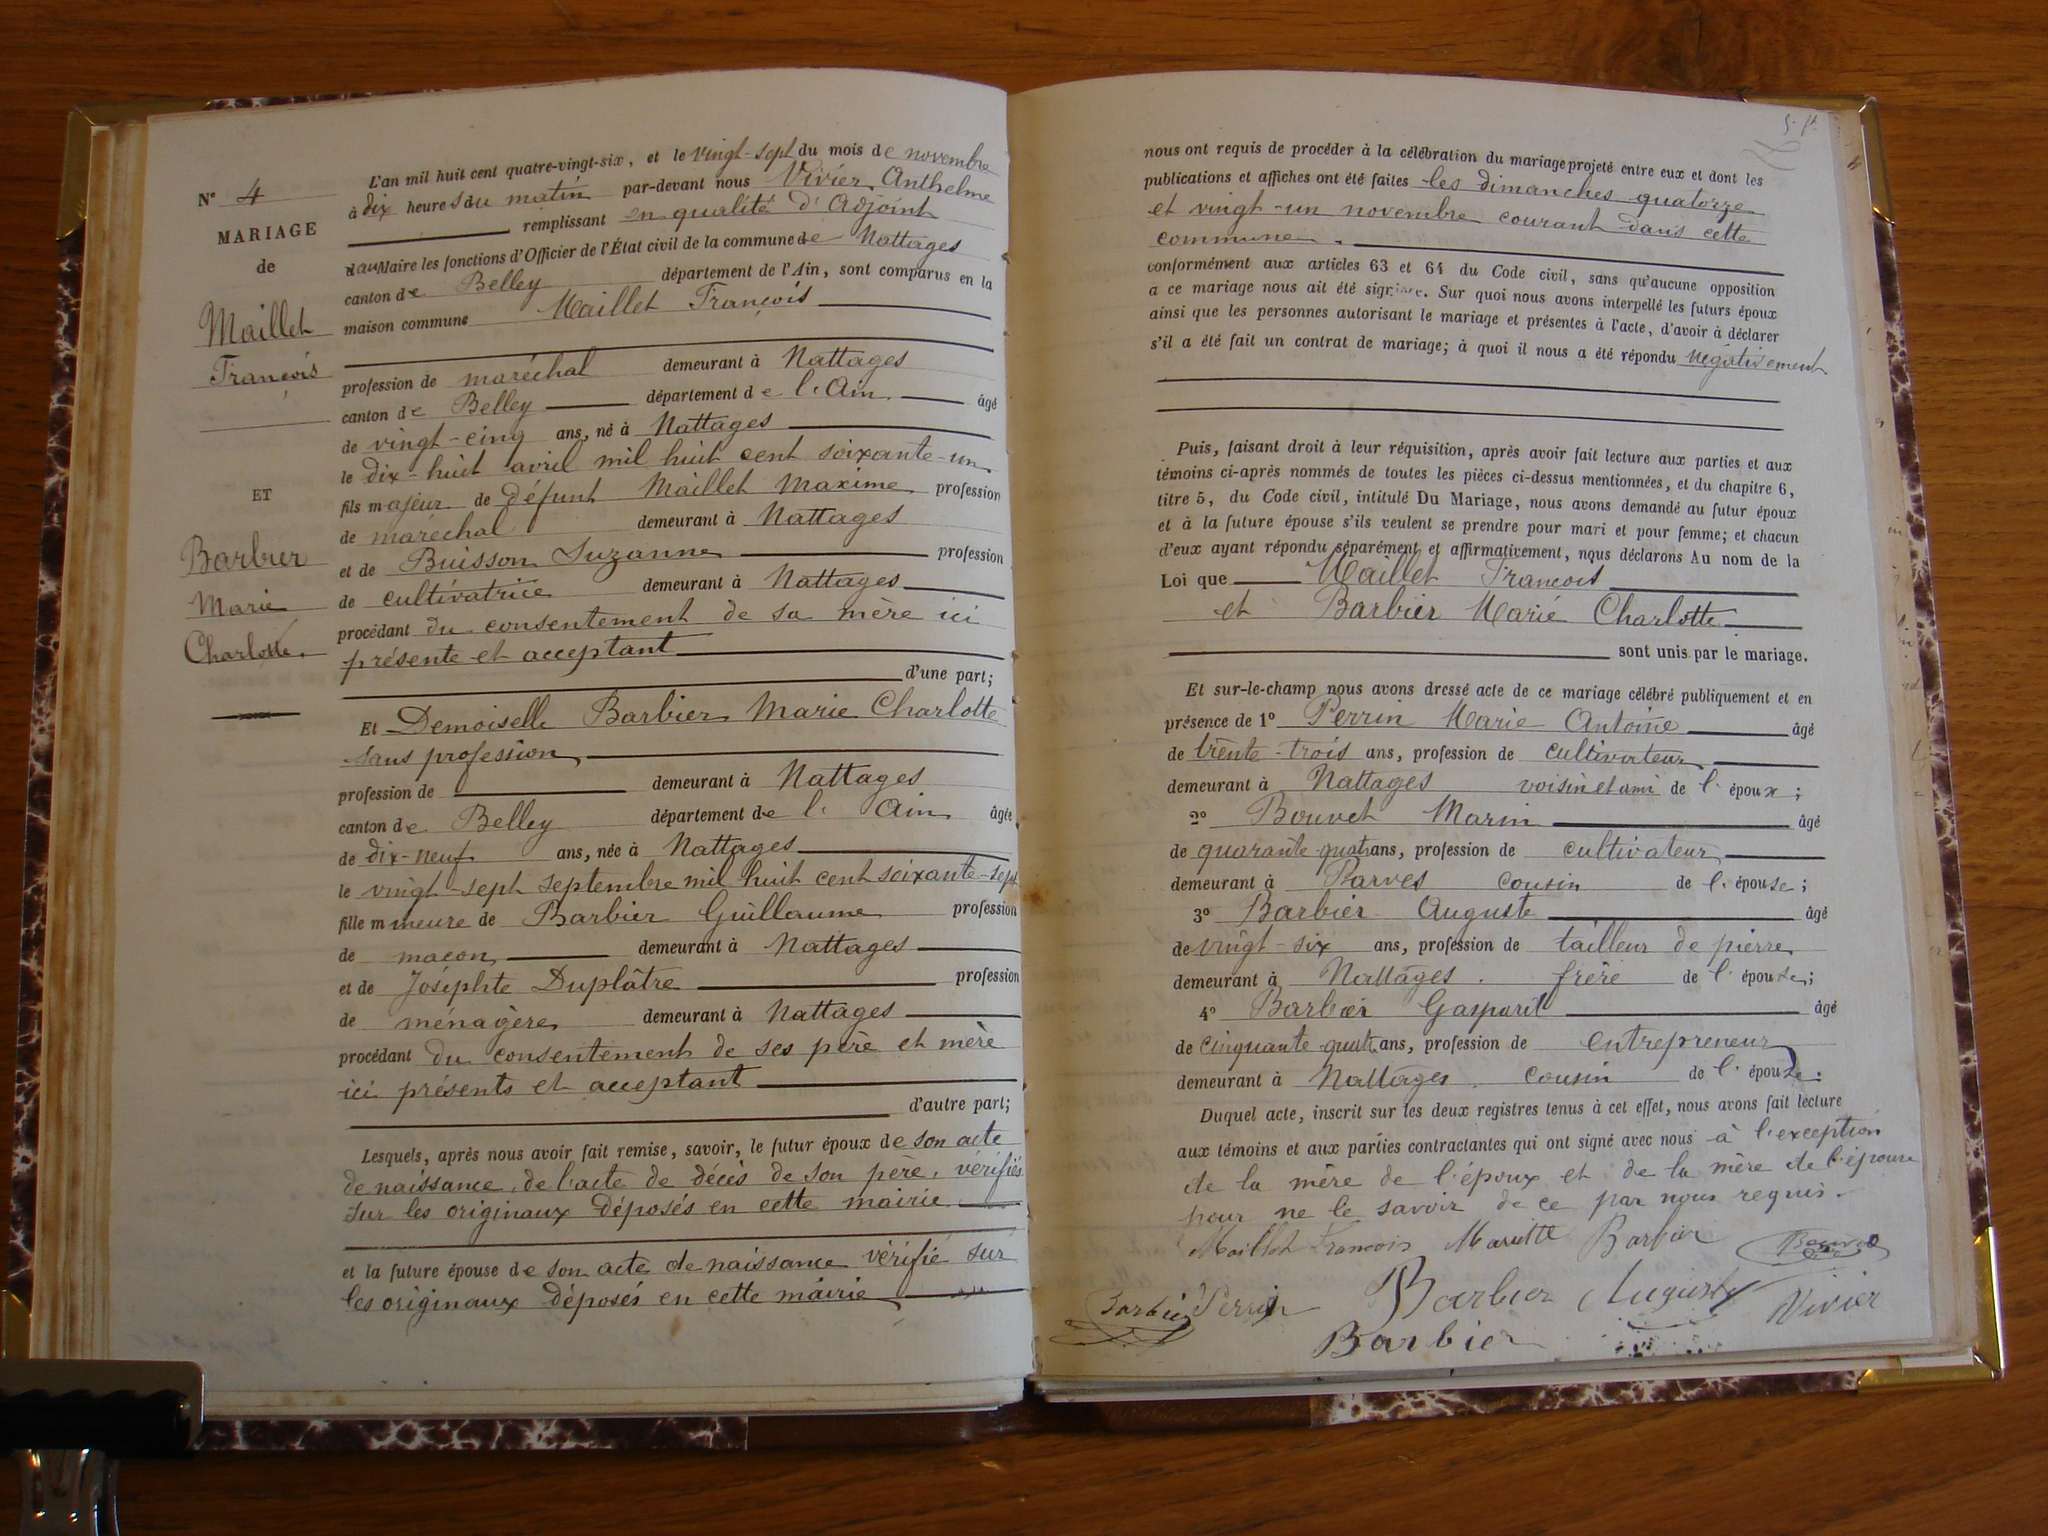 N° 4
MARIAGE
de
Maillet
François
ET
Barbier
Marie
Charlotte.
L'an mil huit cent quatre-vingt-six, et le vingt-sept du mois de novembre
à dix heures du matin par-devant nous Vivier Anthelme
remplissant en qualité d'Adjoint
au Maire les fonctions d'Officier de l'État civil de la commune de Nattages
canton de Belley département de l'Ain, sont comparus en la
maison commune Maillet François
profession de maréchal demeurant à Nattages
canton de Belley département de l'Ain âgé
de vingt-cinq ans, né à Nattages
le dix-huit avril mil huit cent soixante-un
fils majeur de défunt Maillet Maxime profession
de maréchal demeurant à Nattages
et de Buisson Suzanne profession
de cultivatrice demeurant à Nattages
procédant du consentement de sa mère ici
présente et acceptant
d'une part;
Et Demoiselle Barbier Marie Charlotte
sans profession
profession de demeurant à Nattages
canton de Belley département de l'Ain âgée
de dix-neuf ans, née à Nattages
le vingt-sept septembre mil huit cent soixante-sept
fille mineure de Barbier Guillaume profession
de maçon demeurant à Nattages
et de Joséphte Duplâtre profession
de ménagère demeurant à Nattages
procédant du consentement de ses père et mère
ici présents et acceptant
d'autre part;
Lesquels, après nous avoir fait remise, savoir, le futur époux de son acte
de naissance, de l'acte de décès de son père, vérifiés
sur les originaux déposés en cette mairie
et la future épouse de son acte de naissance vérifié sur
les originaux déposés en cette mairie
nous ont requis de procéder à la célébration du mariage projeté entre eux et dont les
publications et affiches ont été faites les dimanches quatorze
et vingt-un novembre courant dans cette
commune.
conformément aux articles 63 et 64 du Code civil, sans qu'aucune opposition
a ce mariage nous ait été signifiée. Sur quoi nous avons interpellé les futurs époux
ainsi que les personnes autorisant le mariage et présentes à l'acte, d'avoir à déclarer
s'il a été fait un contrat de mariage; à quoi il nous a été répondu négativement
Puis, faisant droit à leur réquisition, après avoir fait lecture aux parties et aux
témoins ci-après nommés de toutes les pièces ci-dessus mentionnées, et du chapitre 6,
titre 5, du Code civil, intitulé Du Mariage, nous avons demandé au futur époux
et à la future épouse s'ils veulent se prendre pour mari et pour femme; et chacun
d'eux ayant répondu séparément et affirmativement, nous déclarons Au nom de la
Loi que Maillet François
et Barbier Marie Charlotte
sont unis par le mariage.
Et sur-le-champ nous avons dressé acte de ce mariage célébré publiquement et en
présence de 1° Perrin Marie Antoine âgé
de trente-trois ans, profession de cultivateur
demeurant à Nattages voisin et ami de l'époux;
2° Bouvet Marin âgé
de quarante-quatre ans, profession de cultivateur
demeurant à Parves cousin de l'épouse;
3° Barbier Auguste âgé
de vingt-six ans, profession de tailleur de pierre
demeurant à Nattages. frère de l'épouse;
4° Barbier Gaspard âgé
de cinquante-quatre ans, profession de entrepreneur
demeurant à Nattages. cousin de l'épouse.
Duquel acte, inscrit sur les deux registres tenus à cet effet, nous avons fait lecture
aux témoins et aux parties contractantes qui ont signé avec nous à l'exception
de la mère de l'époux et de la mère de l'épouse
pour ne le savoir de ce par nous requis.
Maillet François Mariette Barbier Bouvet
Barbier Perrin Barbier Auguste Vivier
Barbier